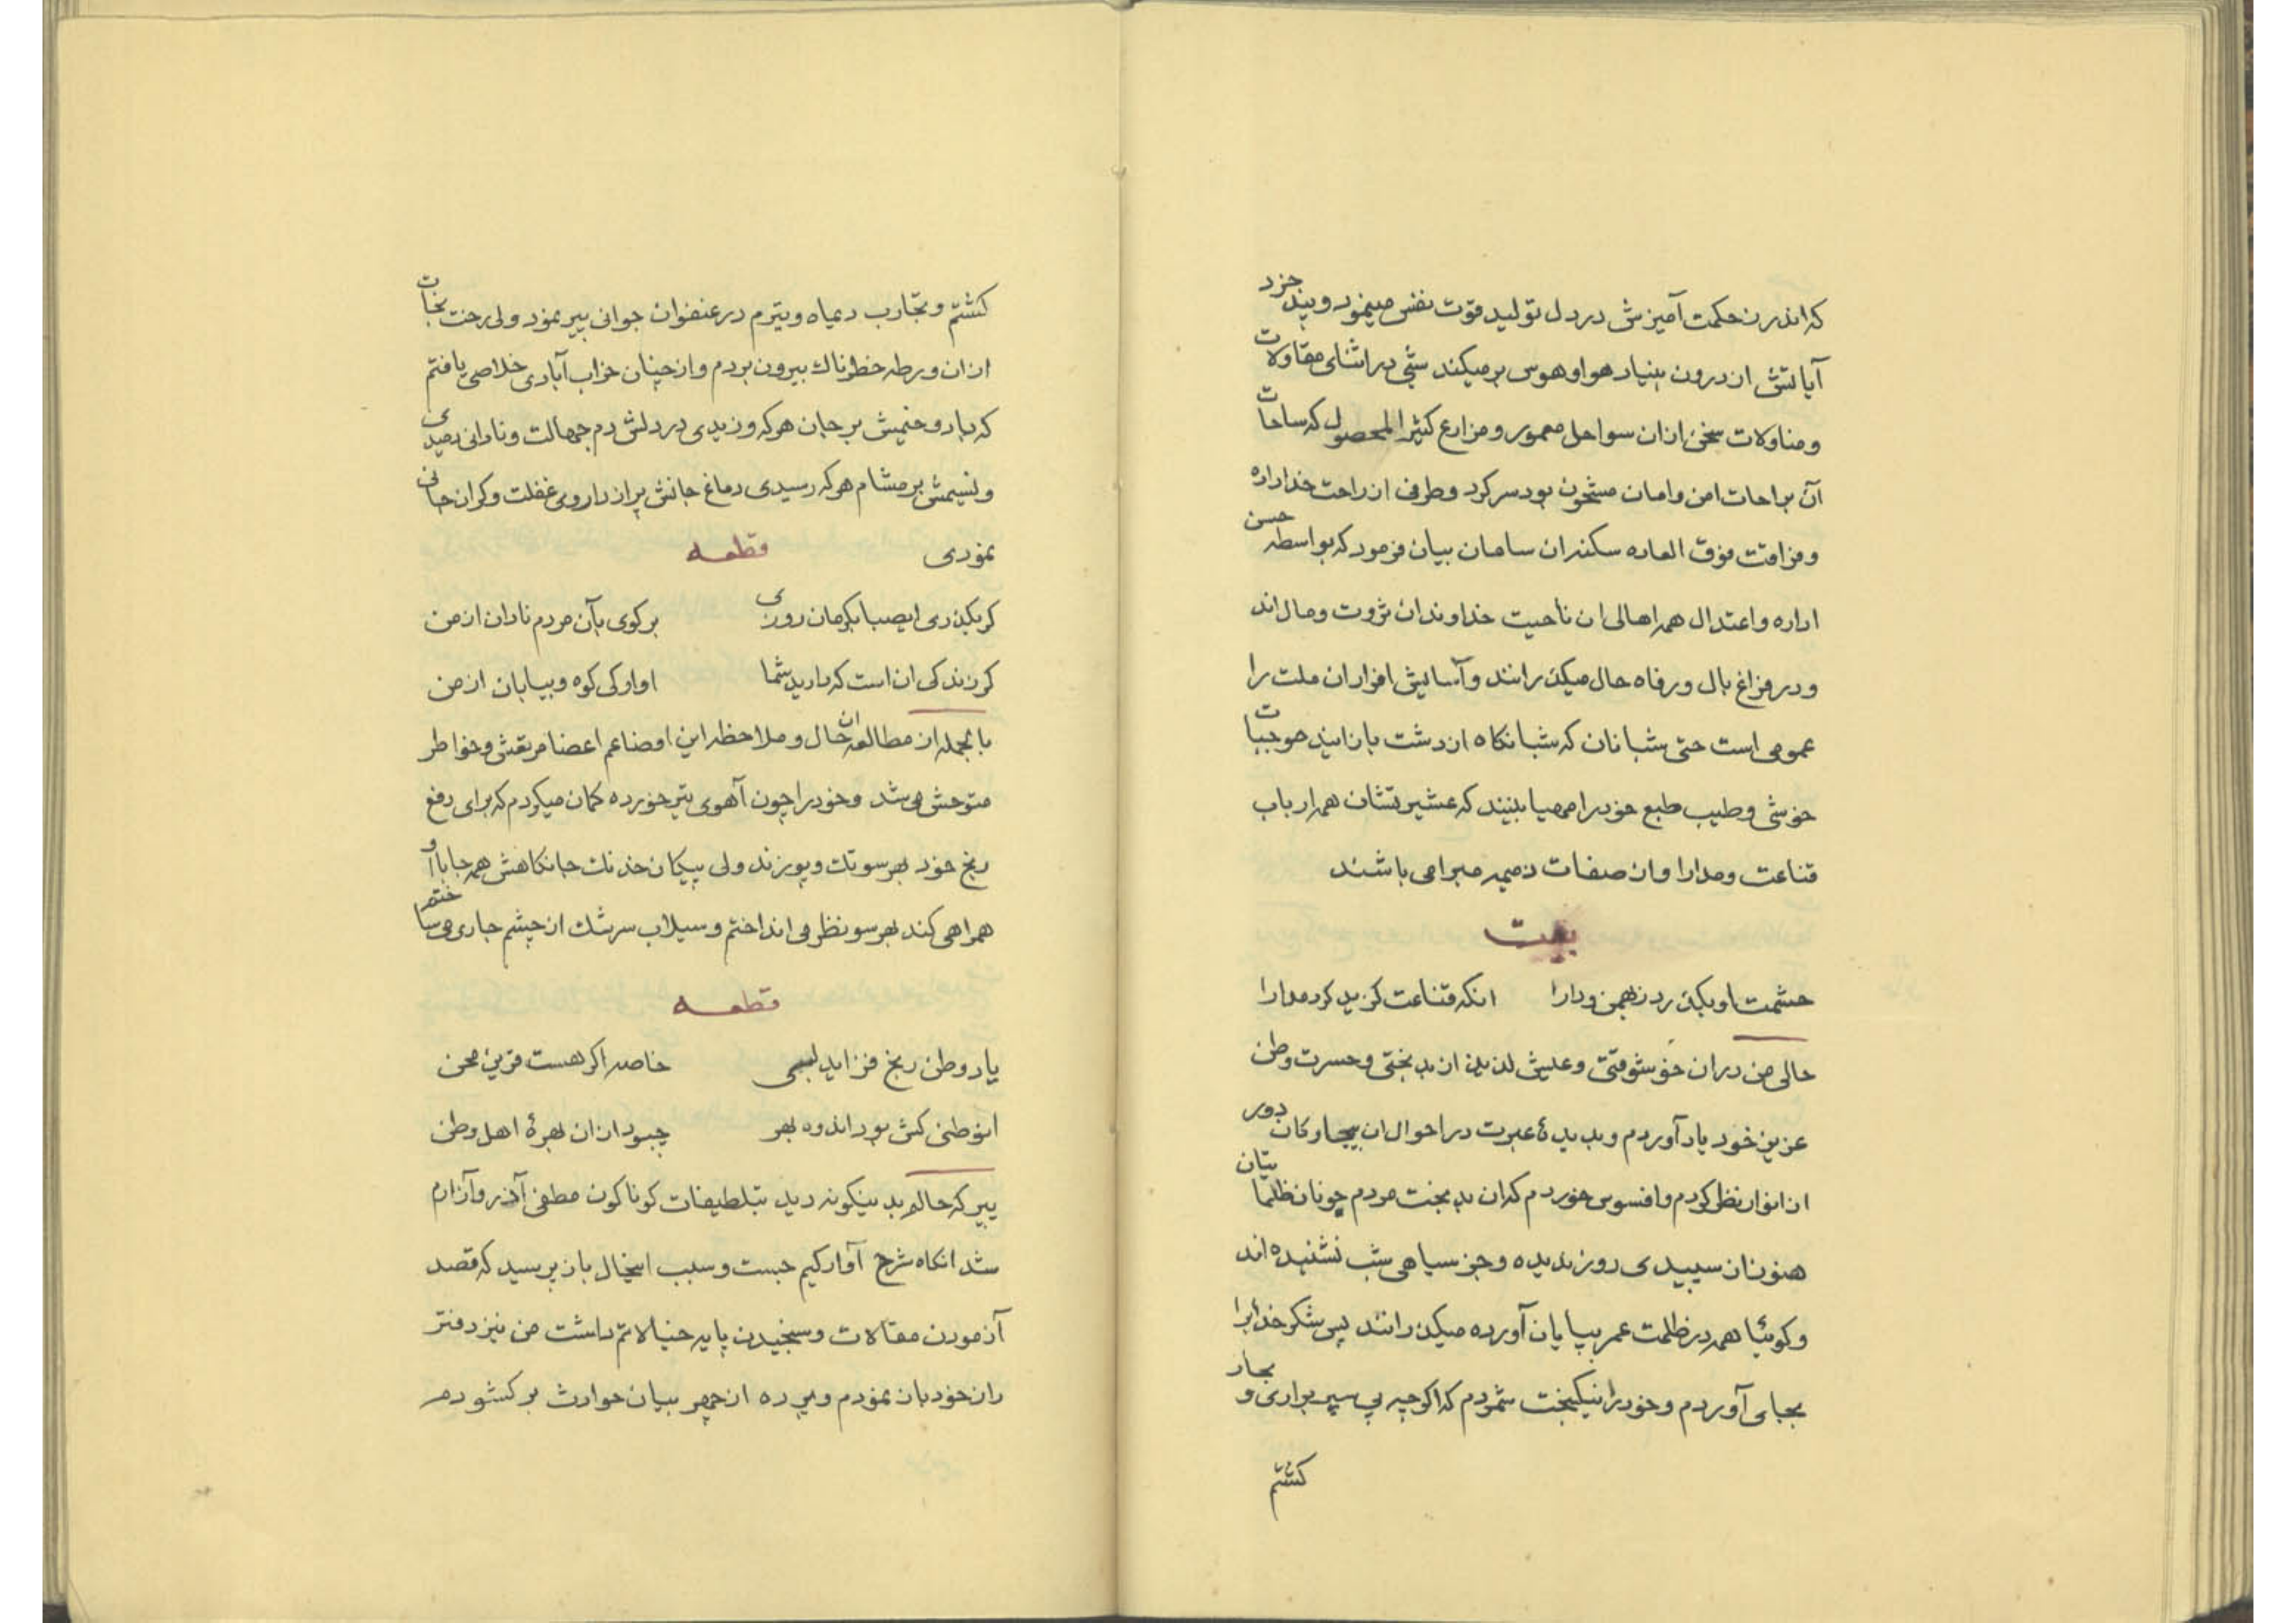 که اندرز حکمت آمیزش در دل تولید قوت نفس مینمود و پند خرد
آیاتش از درون بنیاد هوا و هوس برمیکند شبی در اثنای مقاولات
و مناولات سخن ازان سواحل معمور و مزارع کثیر المحصول که ساحات
آن براحات امن و امان مشحون بود سر کرد و طرفی از راحت خداداده
و فوق العاده سکنه ان سامان بیان فرمود که بواسطه حسن
اداره و اعتدال همه اهالی ان ناحیت خداوندان ثروت و مال اند
و در فراغ بال و رفاه حال میکذرانند و آسایش افراد ان ملت را
عمومی است حتی شبانان که شبانکاه از دشت باز ایند موجبات
خوشی و طیب طبع خود را مهیا بینند که عشیرتشان همه ارباب
قناعت و مدارا و از صفات ذمیمه مبرا می باشند
بیت
حشمت او بکذرد ز بهمن و دارا انکه قناعت کزید کرد مدارا
حالی من دران خوشوقتی و عیش لذیذ از بدبختی و حسرت وطن
عزیز خود یاد آوردم و بدیدهٔ عبرت در احوال ان بیچاوکان دور
از انوار نظر کردم و افسوس خوردم که ان بدبخت مردم چونان ظلماتیان
هنوز ان سپیدی روز ندیده و جز سیاهی شب نشنیده اند
و کوئیا همه در ظلمت عمر بپایان آورده میکذرانند پس شکر خدایرا
بجای آوردم و خود را نیکبخت شمردم که اکرچه پی سپر براری و بحار
کشتم
کشتم و تجارب دی ماه و تیرم در عنفوان جوانی پیر نمود ولی رخت نجات
ازان ورطه خطرناك بیرون بردم و از چنان خراب آبادی خلاصی یافتم
که باد وخیمش بر جان هرکه وزیدی در دلش دم جهالت و نادانی دمیدی
و نسیمش بر مشام هرکه رسیدی دماغ جانش پر از داروی غفلت و کران جانی
نمودی قطعه
کر بکذری ایصبا بکرمان روزی برکوی بآن مردم نادان از من
کر زندکی ان است که دارید شما اوارکی کوه و بیابان از من
بالجمله از مطالعه ان حال و ملاحظه این اوضاعم اعضا مرتعش و خواطر
متوحش می شد و خود را چون آهوی تیر خورده کمان میکردم که برای دفع
رنج خود بهر سو تك و پو زند ولی پیکان خدنك جانکاهش همه جا با او
همراهی کند بهر سو نظر می انداختم و سیلاب سرشك از چشم جاری می ساختم
قطعه
یاد وطن رنج فزاید بسی خاصه اکر هست قرین محن
انوطنی کش بود اندوه بهر چبود ازان بهرهٔ اهل وطن
پیر که حالم بدینکونه دید بتلطیفات کوناکون مطفی آذر و آزارم
شد انکاه شرح آوارکیم جست و سبب اینحال باز پرسید که قصد
آزمودن مقالات و سنجیدن پایه خیالاتم داشت من نیز دفتر
راز خود باز نمودم و پرده از چهر بیان حوادث برکشودم